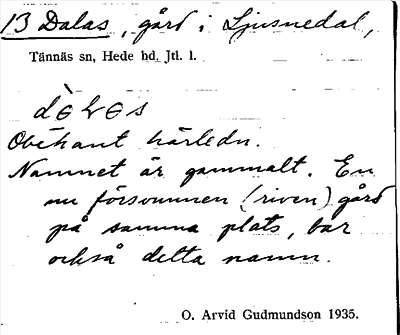 13 Dalas, gård i Ljusnedal,
Tännäs sn, Hede hd, Jtl. l.
Obekant härledn.
Namnet är gammalt. En
nu försvunnen (riven) gård
på samma plats, bar
också detta namn.
O. Arvid Gudmundson 1935.